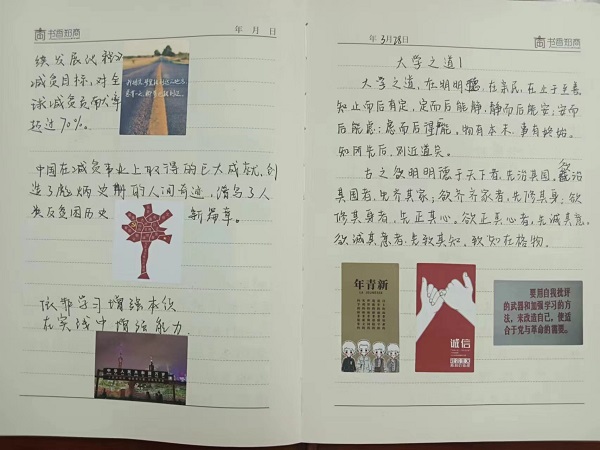 书香知商
年 月 日
续发展议程
减贫目标,对全
球减贫贡献率
超过70%。
中国在减贫事业上取得的巨大成就,创
造了彪炳史册的人间奇迹,谱写了人
类反贫困历史 新篇章。
依靠学习增强本领
在实践中增强能力
年3月28日
书香知商
大学之道1
大学之道,在明明德,在亲民,在止于至善
知止而后有定,定而后能静,静而后能安;安而
后能虑;虑而后得能,物有本末,事有终始。
知所先后,则近道矣。
古之欲明明德于天下者,先治其国,欲治
其国者,先齐其家;欲齐齐家者,先修其身;欲
修其身者,先正其心。欲正其心者,先诚其意。
欲诚其意者,先致其知。致知在格物。
年青新
诚信
要用自我批评
的武器和加强学习的方
法,来改造自己,使适
合于党与革命的需要。